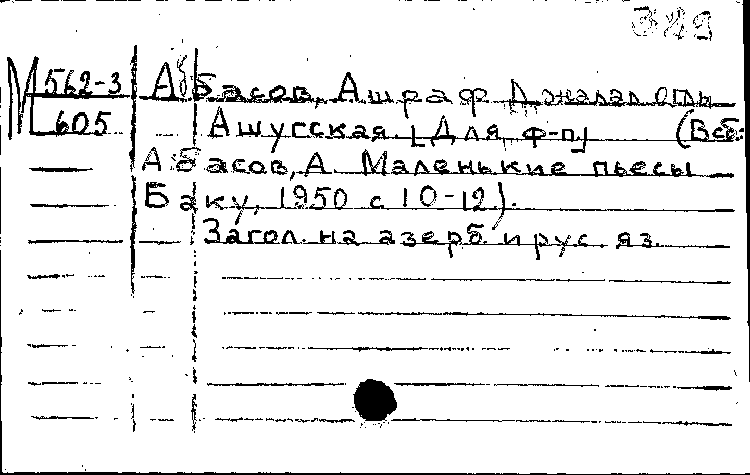 329
М 562-3 Аббасов, Ашраф Джалал оглы
605 Ашугская. [Для ф-п.] (В сб.:
Аббасов, А. Маленькие пьесы
Баку, 1950 с 10-12).
Загол. на азерб. и рус. яз.